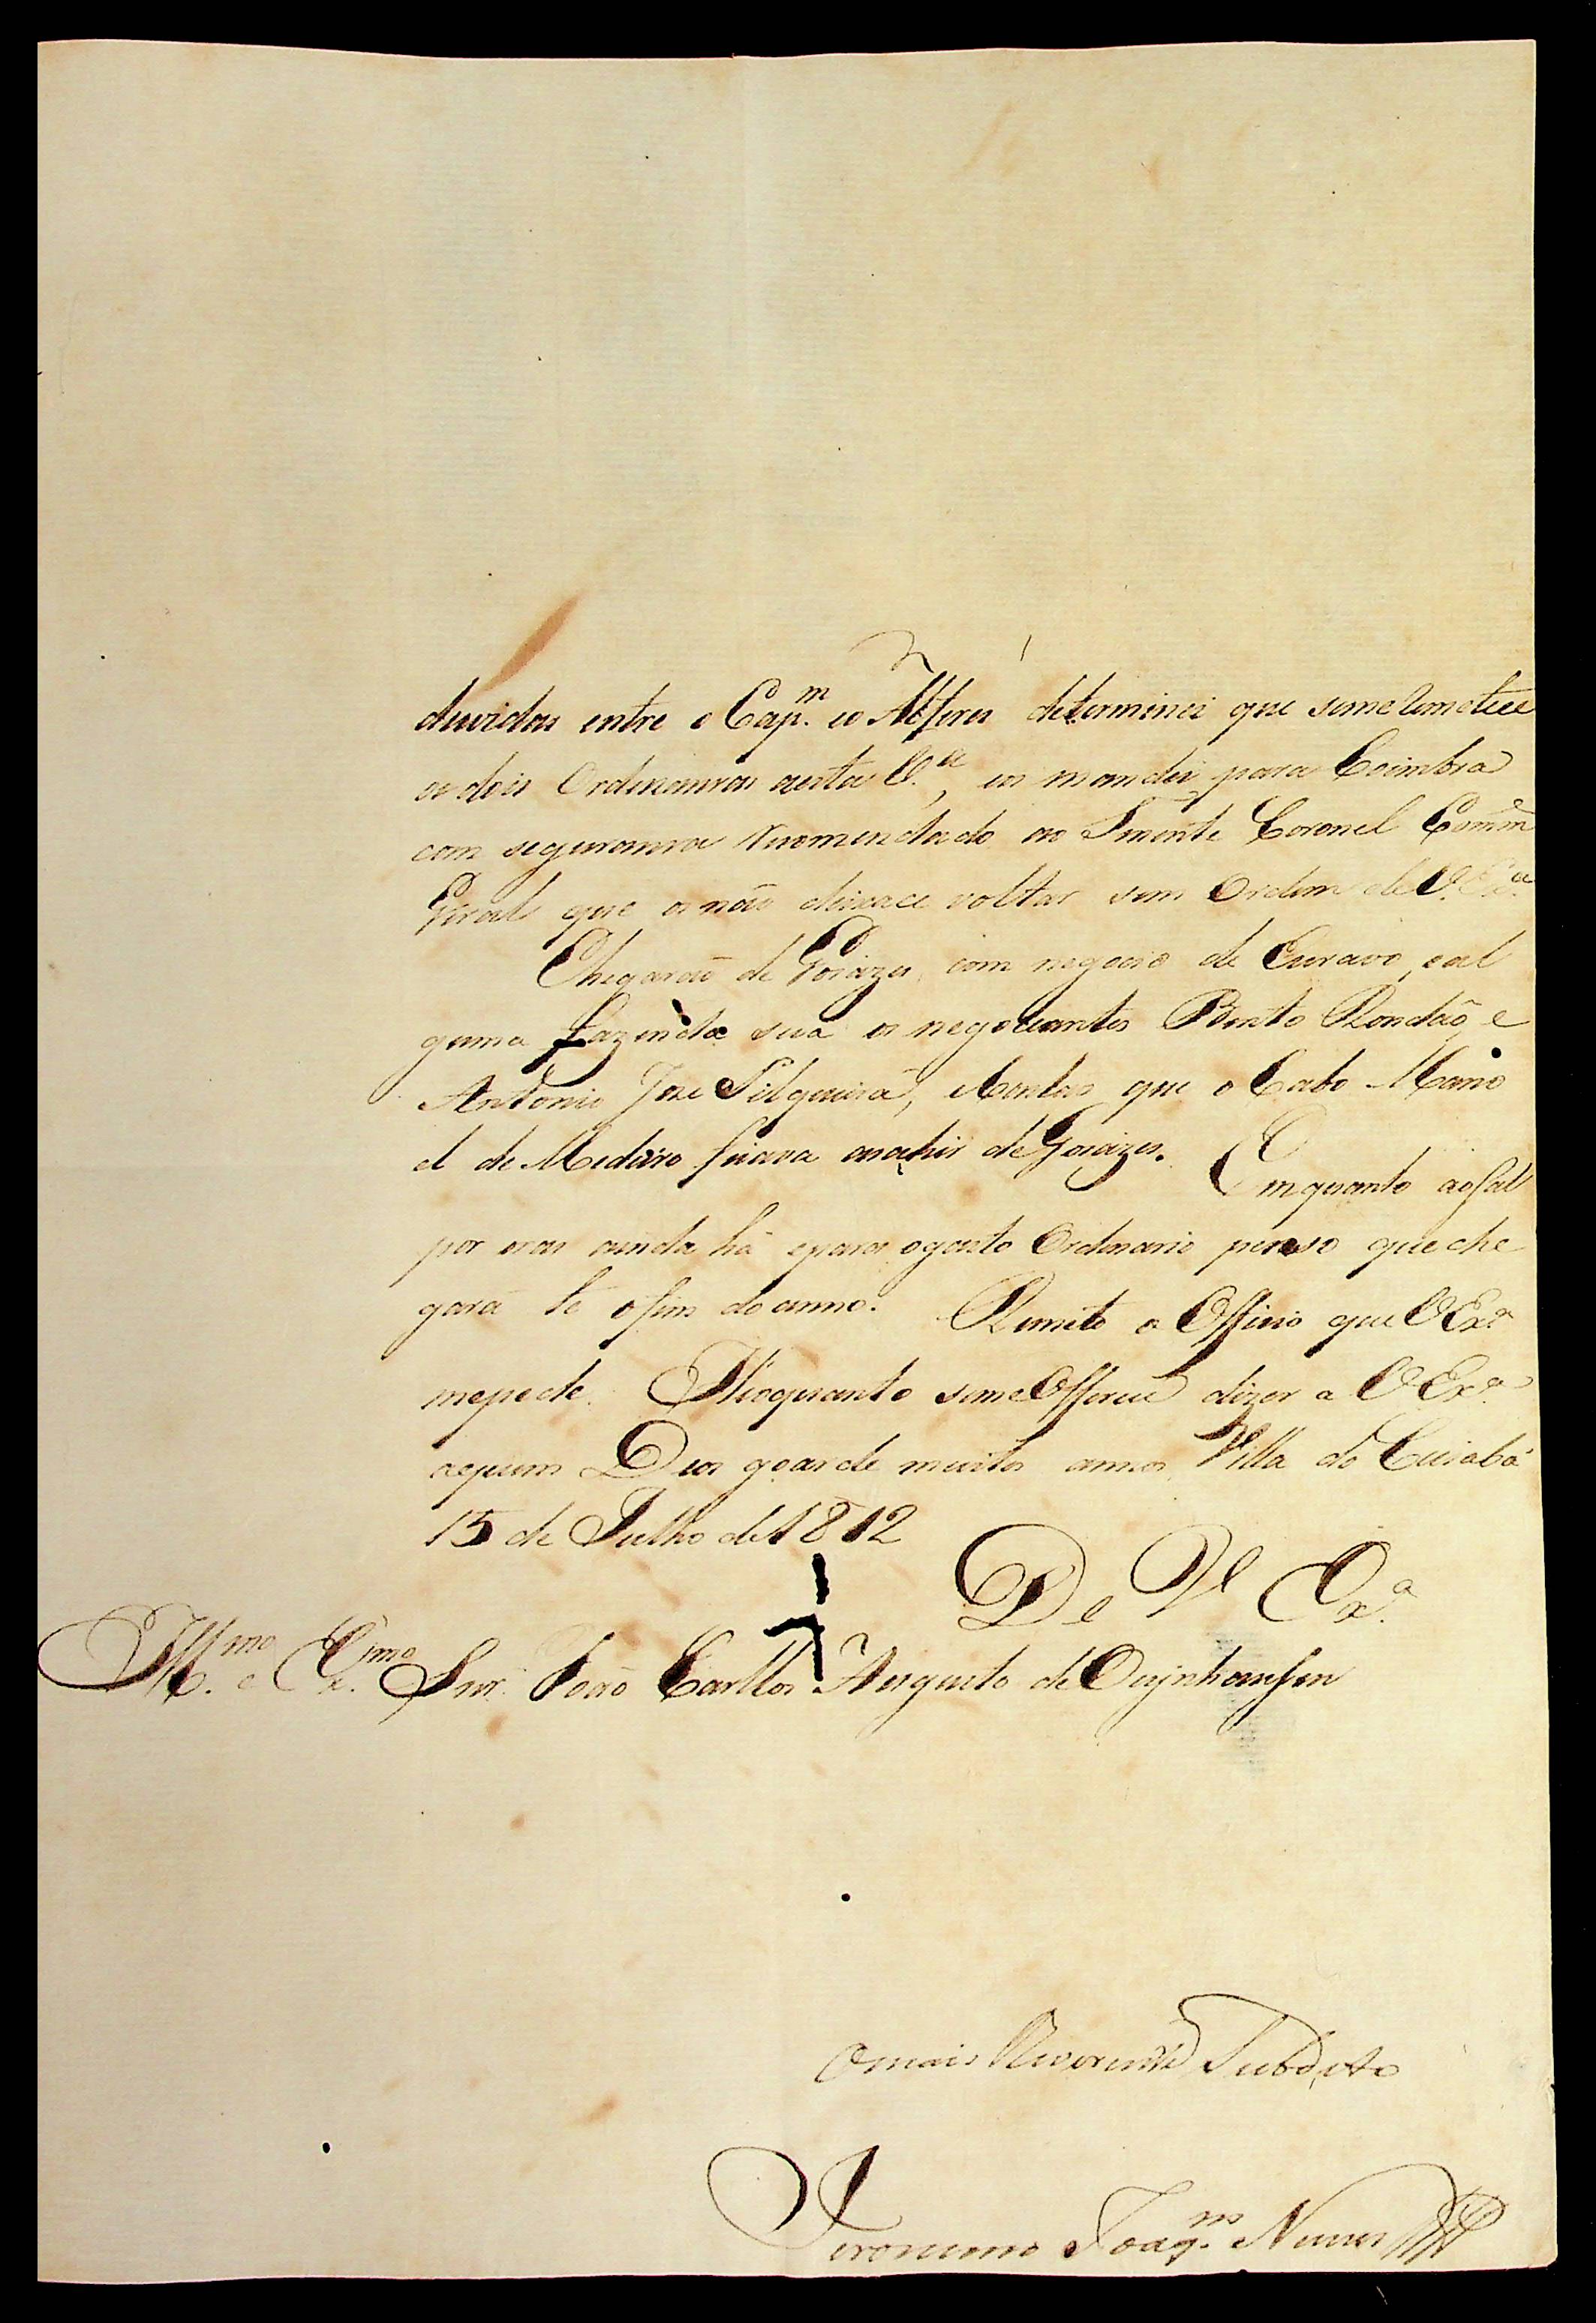 duvidas entre o Cap.m eo Alferes determinei que seme Remetece
os dois Ordenanças aesta V.a, eos mandei para Coimbra
com segurança Recomendado ao Tenente Coronel Comm.e
Geral que os não deixace voltar sem Ordem de V. Ex.a
Chegarão de Goiazes com negocio de Escravo, eal
guma fazenda sua os negociantes Bento Rondão e
Antonio Joze Silgueira, e Contão que o Cabo Mano
el de Medeiro ficava asahir de Goiazes. Emquanto aoSal
por oras ainda há epara ogasto Ordinario penso que che
gará té ofim do anno. Remeto o Officio que V Ex.a
mepede. Héoquanto seme Offerece dizer a V Ex.a
aquem Deos goarde muitos annos Villa do Cuiabá
15 de Julho de 1812
De V Ex.a
Ill.mo e Ex.mo Snr. João Carllos Augusto de Oeynhausen
Omais Reverente Subdito
Jeronimo Joaq.m Nunes